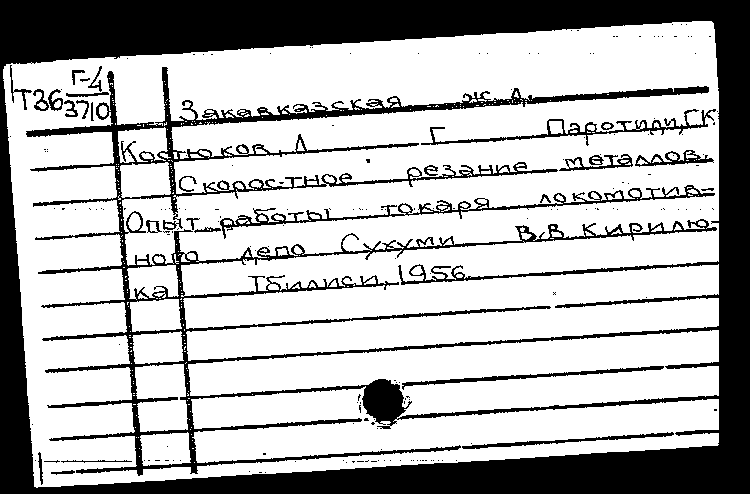 Г-4
Т36 3710
Закавказская ж.д.
Костюков, Л Г Паротиди, ГК
Скоростное резание металлов.
Опыт работы токаря локомотив=
ного депо Сухуми В.В Кирилю-
ка Тбилиси, 1956